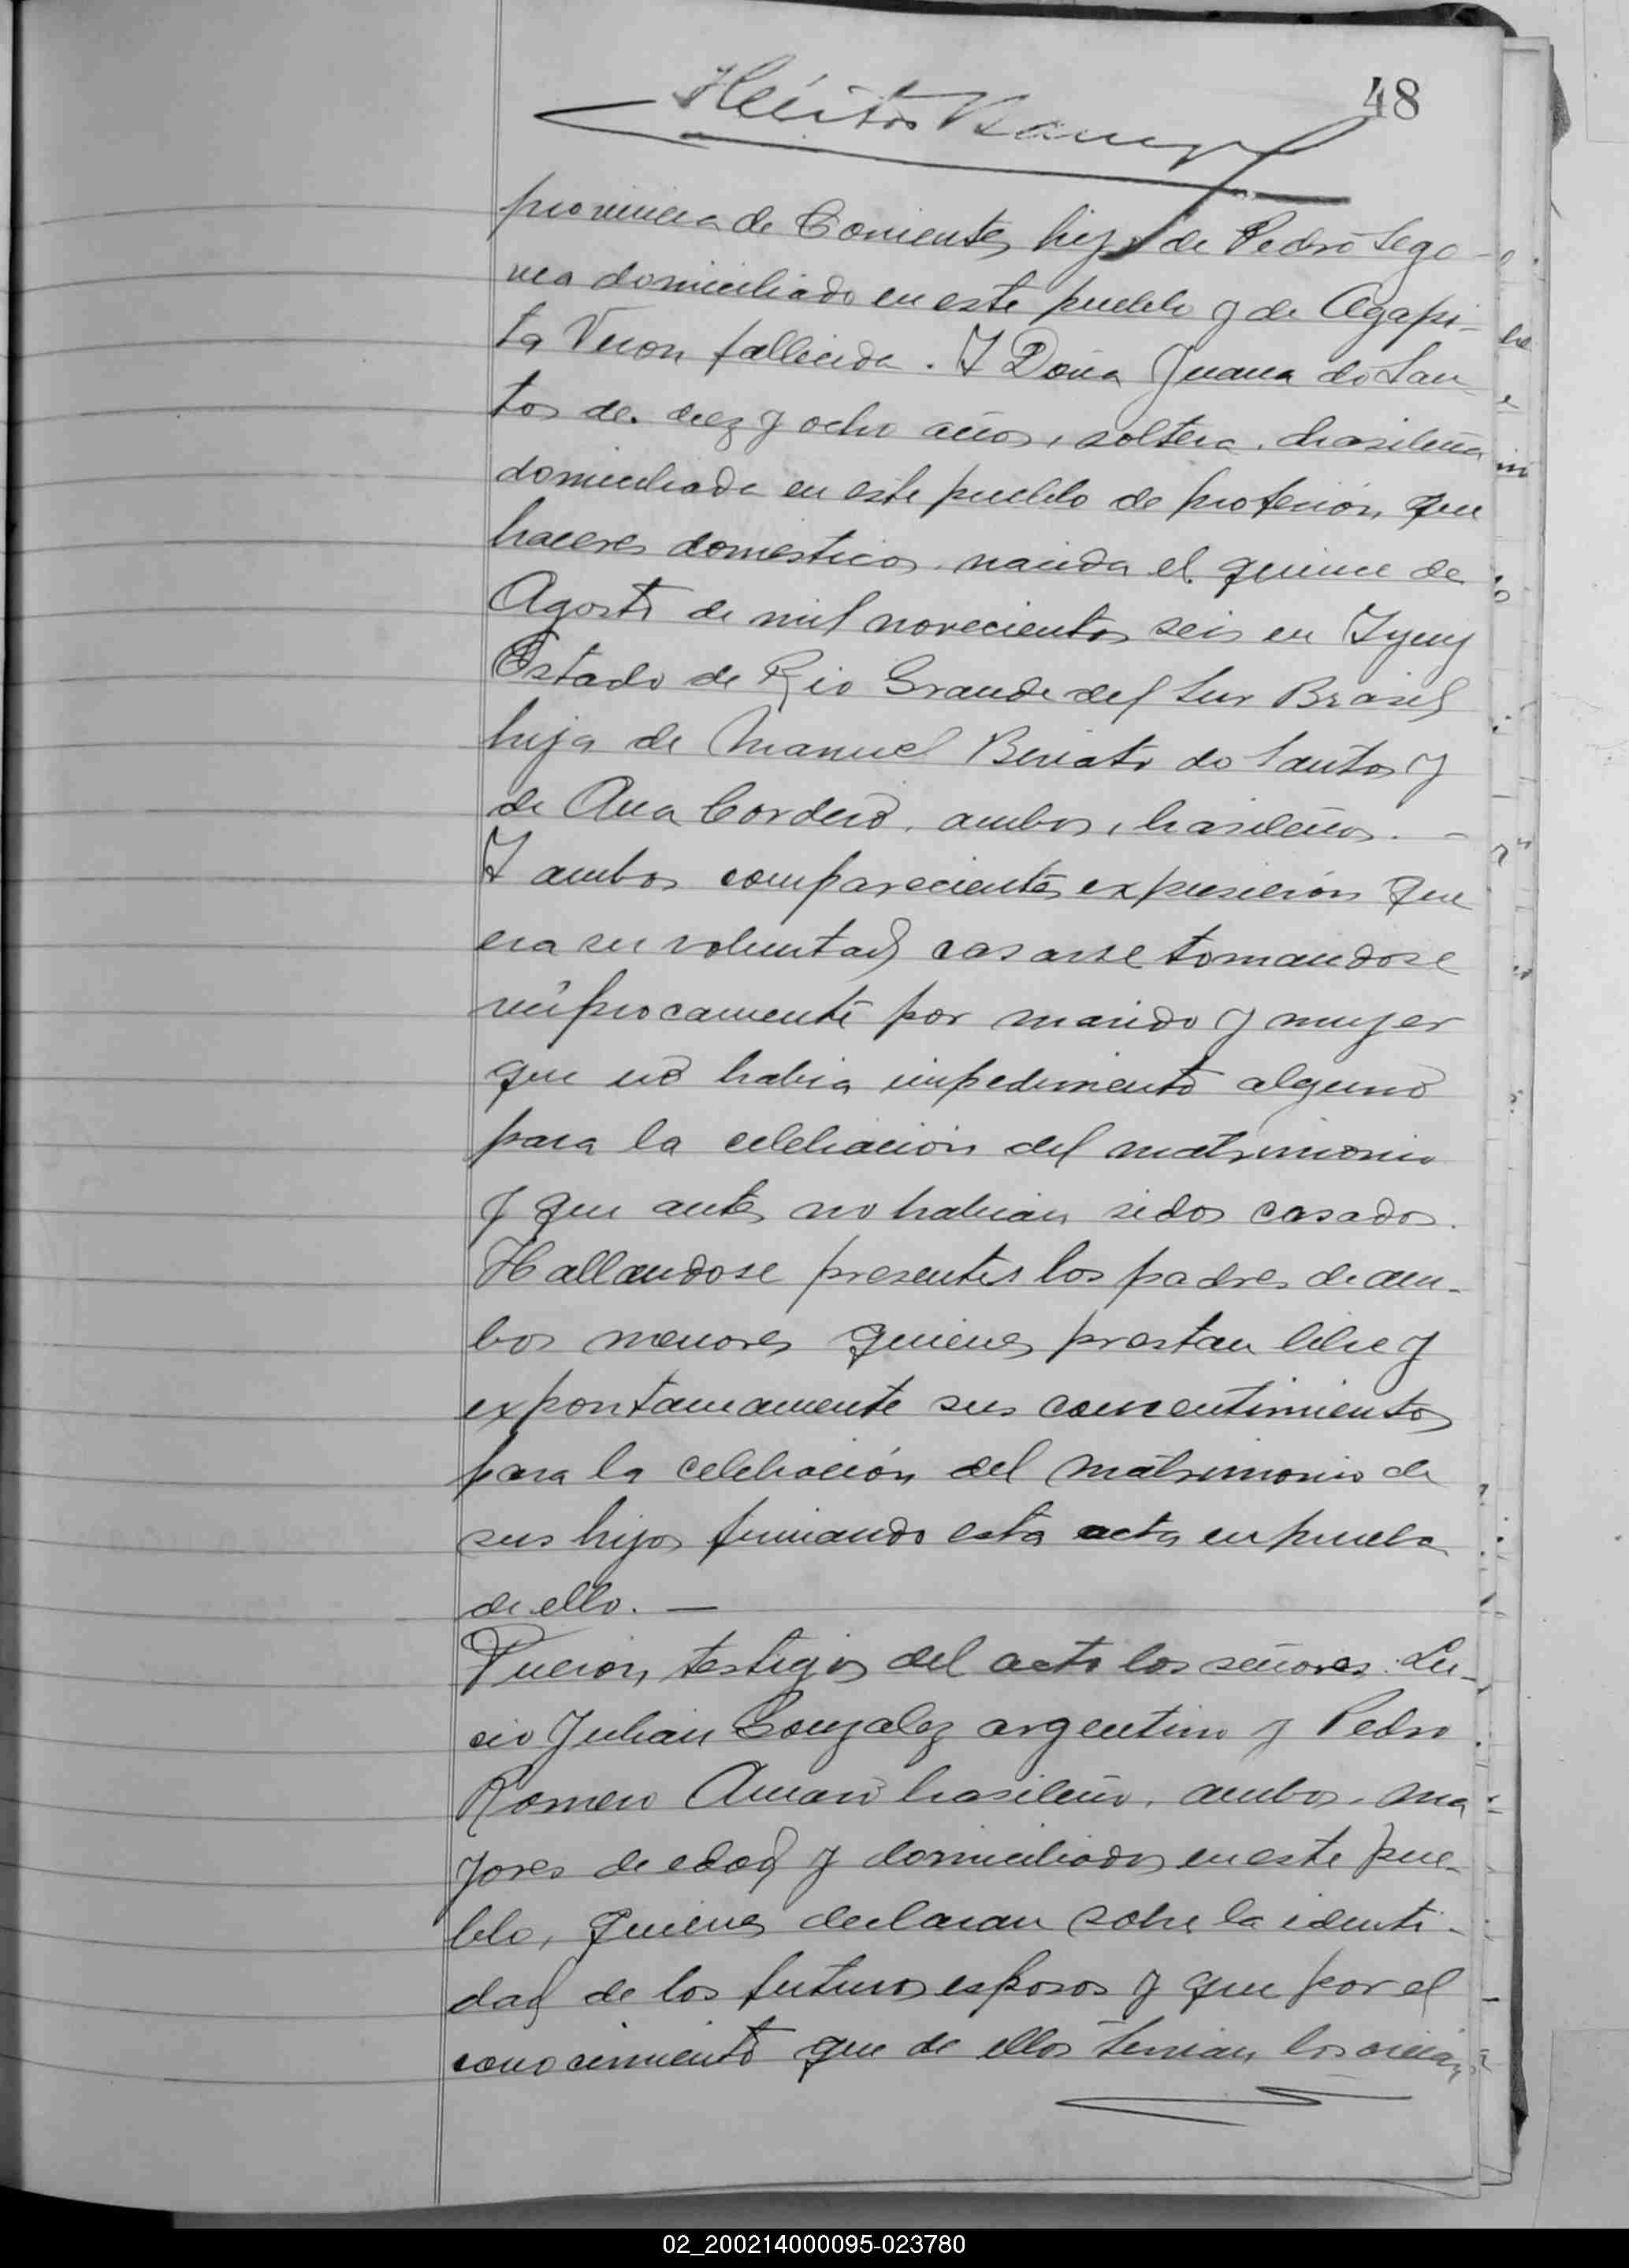 48
Héctor
provincia de Corrientes, hijo de Pedro Sego-
via domiciliado en este pueblo y de Agapi-
ta Veron fallecida. Y Doña Juana do San-
tos de diez y ocho años, soltera, brasileña
domiciliada en este pueblo de profesión que
haceres domesticos, nacida el quince de
Agosto de mil novecientos seis en Yjuy
Estado de Rio Grande del Sur Brasil
hija de Manuel do Santos y
de Ana Cordero, ambos, brasileños. —
Y ambos comparecientes expusieron que
era su voluntad casarse tomandose
reciprocamente por marido y mujer
que no habia impedimento alguno
para la celebración del matrimonio
y que antes no habian sidos casados.
Hallandose presentes los padres de am-
bos menores quienes prestan libre y
expontaneamente sus consentimientos
para la celebración del matrimonio de
sus hijos firmando esta acta en prueba
de ello. —
Fueron testigos del acto los señores: Lu-
cio Julian Gonzalez argentino y Pedro
Romero brasileño, ambos, ma
yores de edad y domiciliados en este pue-
blo, quienes declaran sobre la identi-
dad de los futuros esposos y que por el
conocimiento que de ellos tenian los creian
02_200214000095-023780